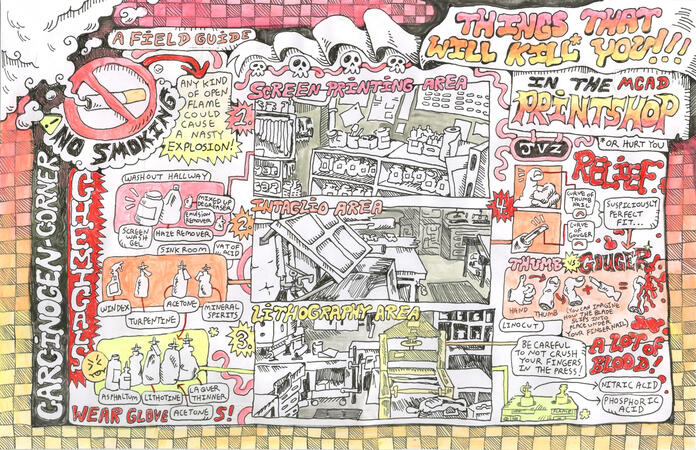 A FIELD GUIDE
THINGS THAT
WILL KILL* YOU!!!
IN THE MCAD
PRINTSHOP
*OR HURT YOU
NO SMOKING
ANY KIND
OF OPEN
FLAME
COULD
CAUSE
A NASTY
EXPLOSION!
CARCINOGEN-CORNER
CHEMICALS
1.
WASHOUT HALLWAY
MIXED UP
DEGREASER
EMULSION
REMOVER
SCREEN
WASH
GEL
HAZE REMOVER
2.
SINK ROOM
VAT OF
ACID
WINDEX
ACETONE
TURPENTINE
MINERAL
SPIRITS
3.
ASPHALTUM
LITHOTINE
LAQUER
THINNER
ACETONE
WEAR GLOVES!
SCREEN PRINTING AREA
INTAGLIO AREA
LITHOGRAPHY AREA
4.
RELIEF
CURVE OF
THUMB
NAIL
CURVE
OF
GOUGER
SUSPICIOUSLY
PERFECT
FIT...
THUMB VS GOUGER
HAND
THUMB
(YOU CAN IMAGINE
HOW THE BLADE
SLIPS INTO
PLACE UNDER
YOUR FINGERNAIL)
LINOCUT
A LOT OF
BLOOD!
BE CAREFUL
TO NOT CRUSH
YOUR FINGERS
IN THE PRESS!
NITRIC ACID
PHOSPHORIC
ACID